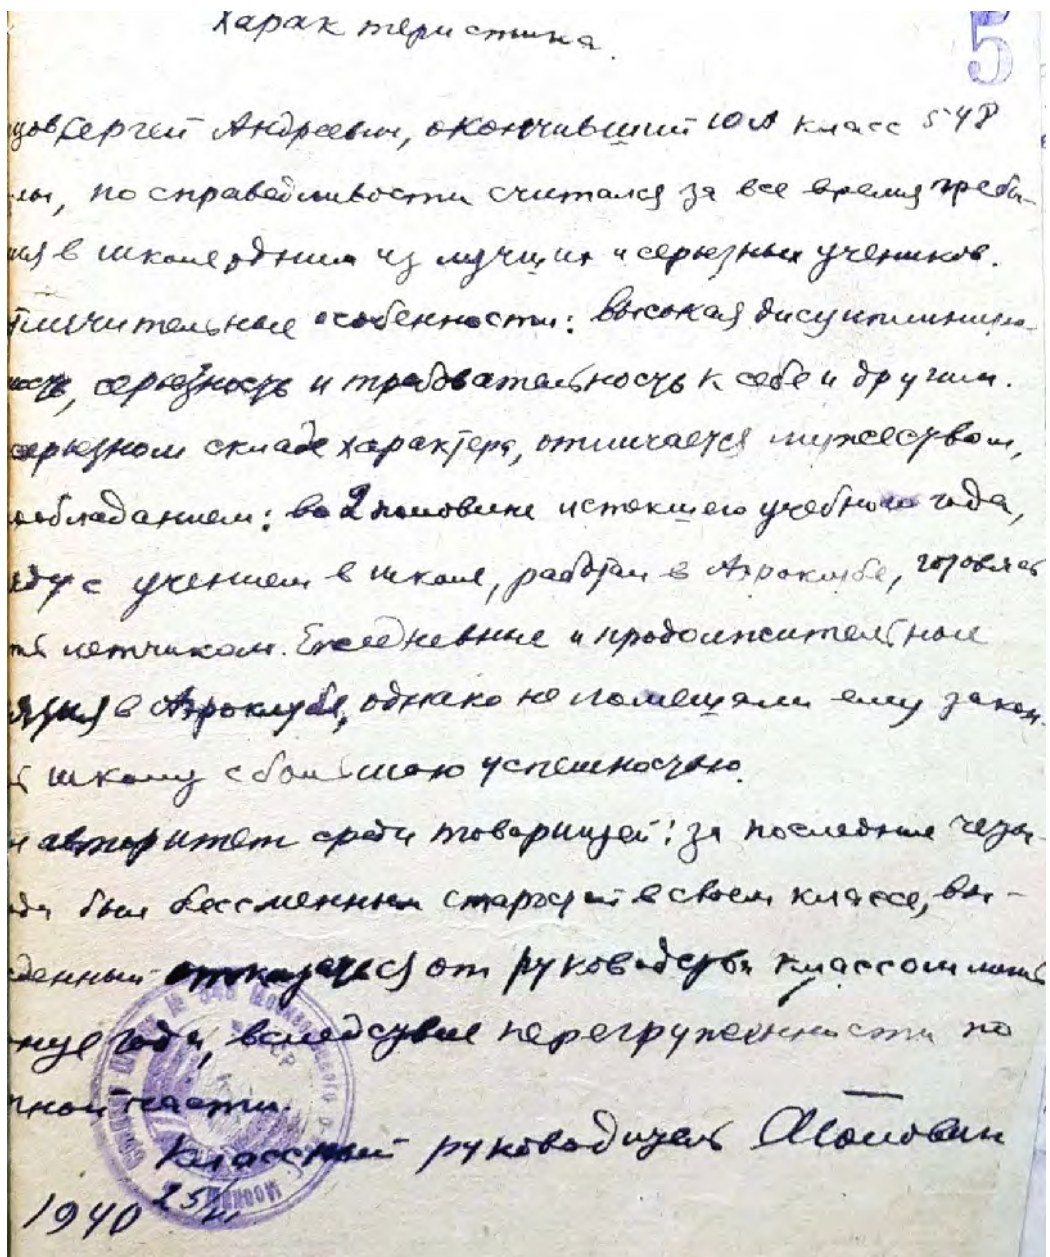 Характеристика.
5
цов Сергей Андреевич, окончивший 10 А класс 548
лы, по справедливости считался за все время пребы-
ния в школе одним из лучших и серьезных учеников.
тличительные особенности: высокая дисциплиниро-
ность, серьезность и требовательность к себе и другим.
серьезном складе характера, отличается мужеством,
мообладанием: во 2 половине истекшего учебного года,
яду с учением в школе, работал в Аэроклубе, готовясь
ть летчиком. Ежедневные и продолжительные
ятия в Аэроклубе, однако не помешали ему закон-
ь школу с большою успешностью.
н авторитет среди товарищей: за последние
ода был бессменным старостой в своем классе, вы-
денный отказаться от руководства классом лишь
нце года, вследствие перегруженности по
ной части.
Классный руководитель
1940 25/VI